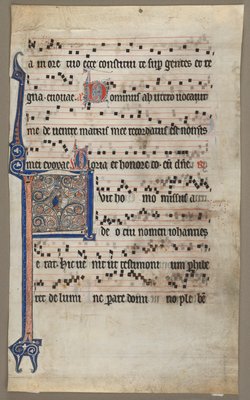 a in ore tuo ecce constitui te sup gentes et re
gna. euouae. Dominus ab utero uocauit
me de uentre matris mee recordatus est nominis
mei euouae. Gloria et honore dne.
Fuit ho mo missus a
de o cui nomen iohannes
erat. Hic ue nit ut testimoni um phibe
ret de lumi ne domi no ple be